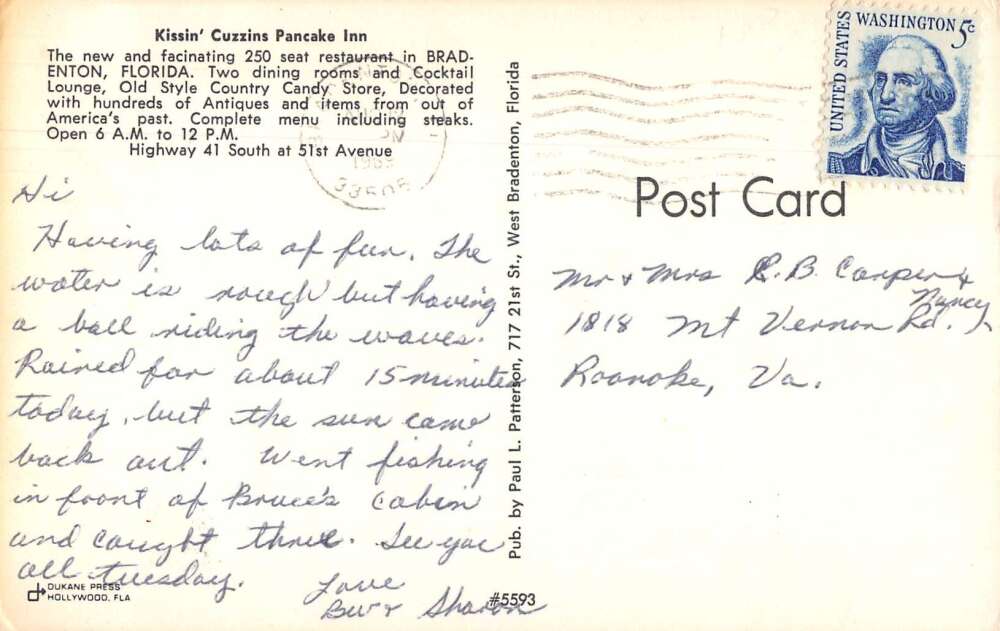 Kissin' Cuzzins Pancake Inn
The new and facinating 250 seat restaurant in BRAD-
ENTON, FLORIDA. Two dining rooms and Cocktail
Lounge, Old Style Country Candy Store, Decorated
with hundreds of Antiques and items from out of
America's past. Complete menu including steaks.
Open 6 A.M. to 12 P.M.
Highway 41 South at 51st Avenue
PM
33505
Hi
Having lots of fun. The
water is rough but having
a ball riding the waves.
Rained for about 15 minutes
today, but the sun came
back out. Went fishing
in front of Bruce's cabin
and caught three. See you
all tuesday.
Love
Sharon
DUKANE PRESS
HOLLYWOOD, FLA
#5593
Pub. by Paul L. Patterson, 717 21st St., West Bradenton, Florida
UNITED STATES
WASHINGTON 5c
Post Card
Mr & Mrs C.B. Carper &
Nancy
1818 Mt Vernon Rd.
Roanoke, Va.